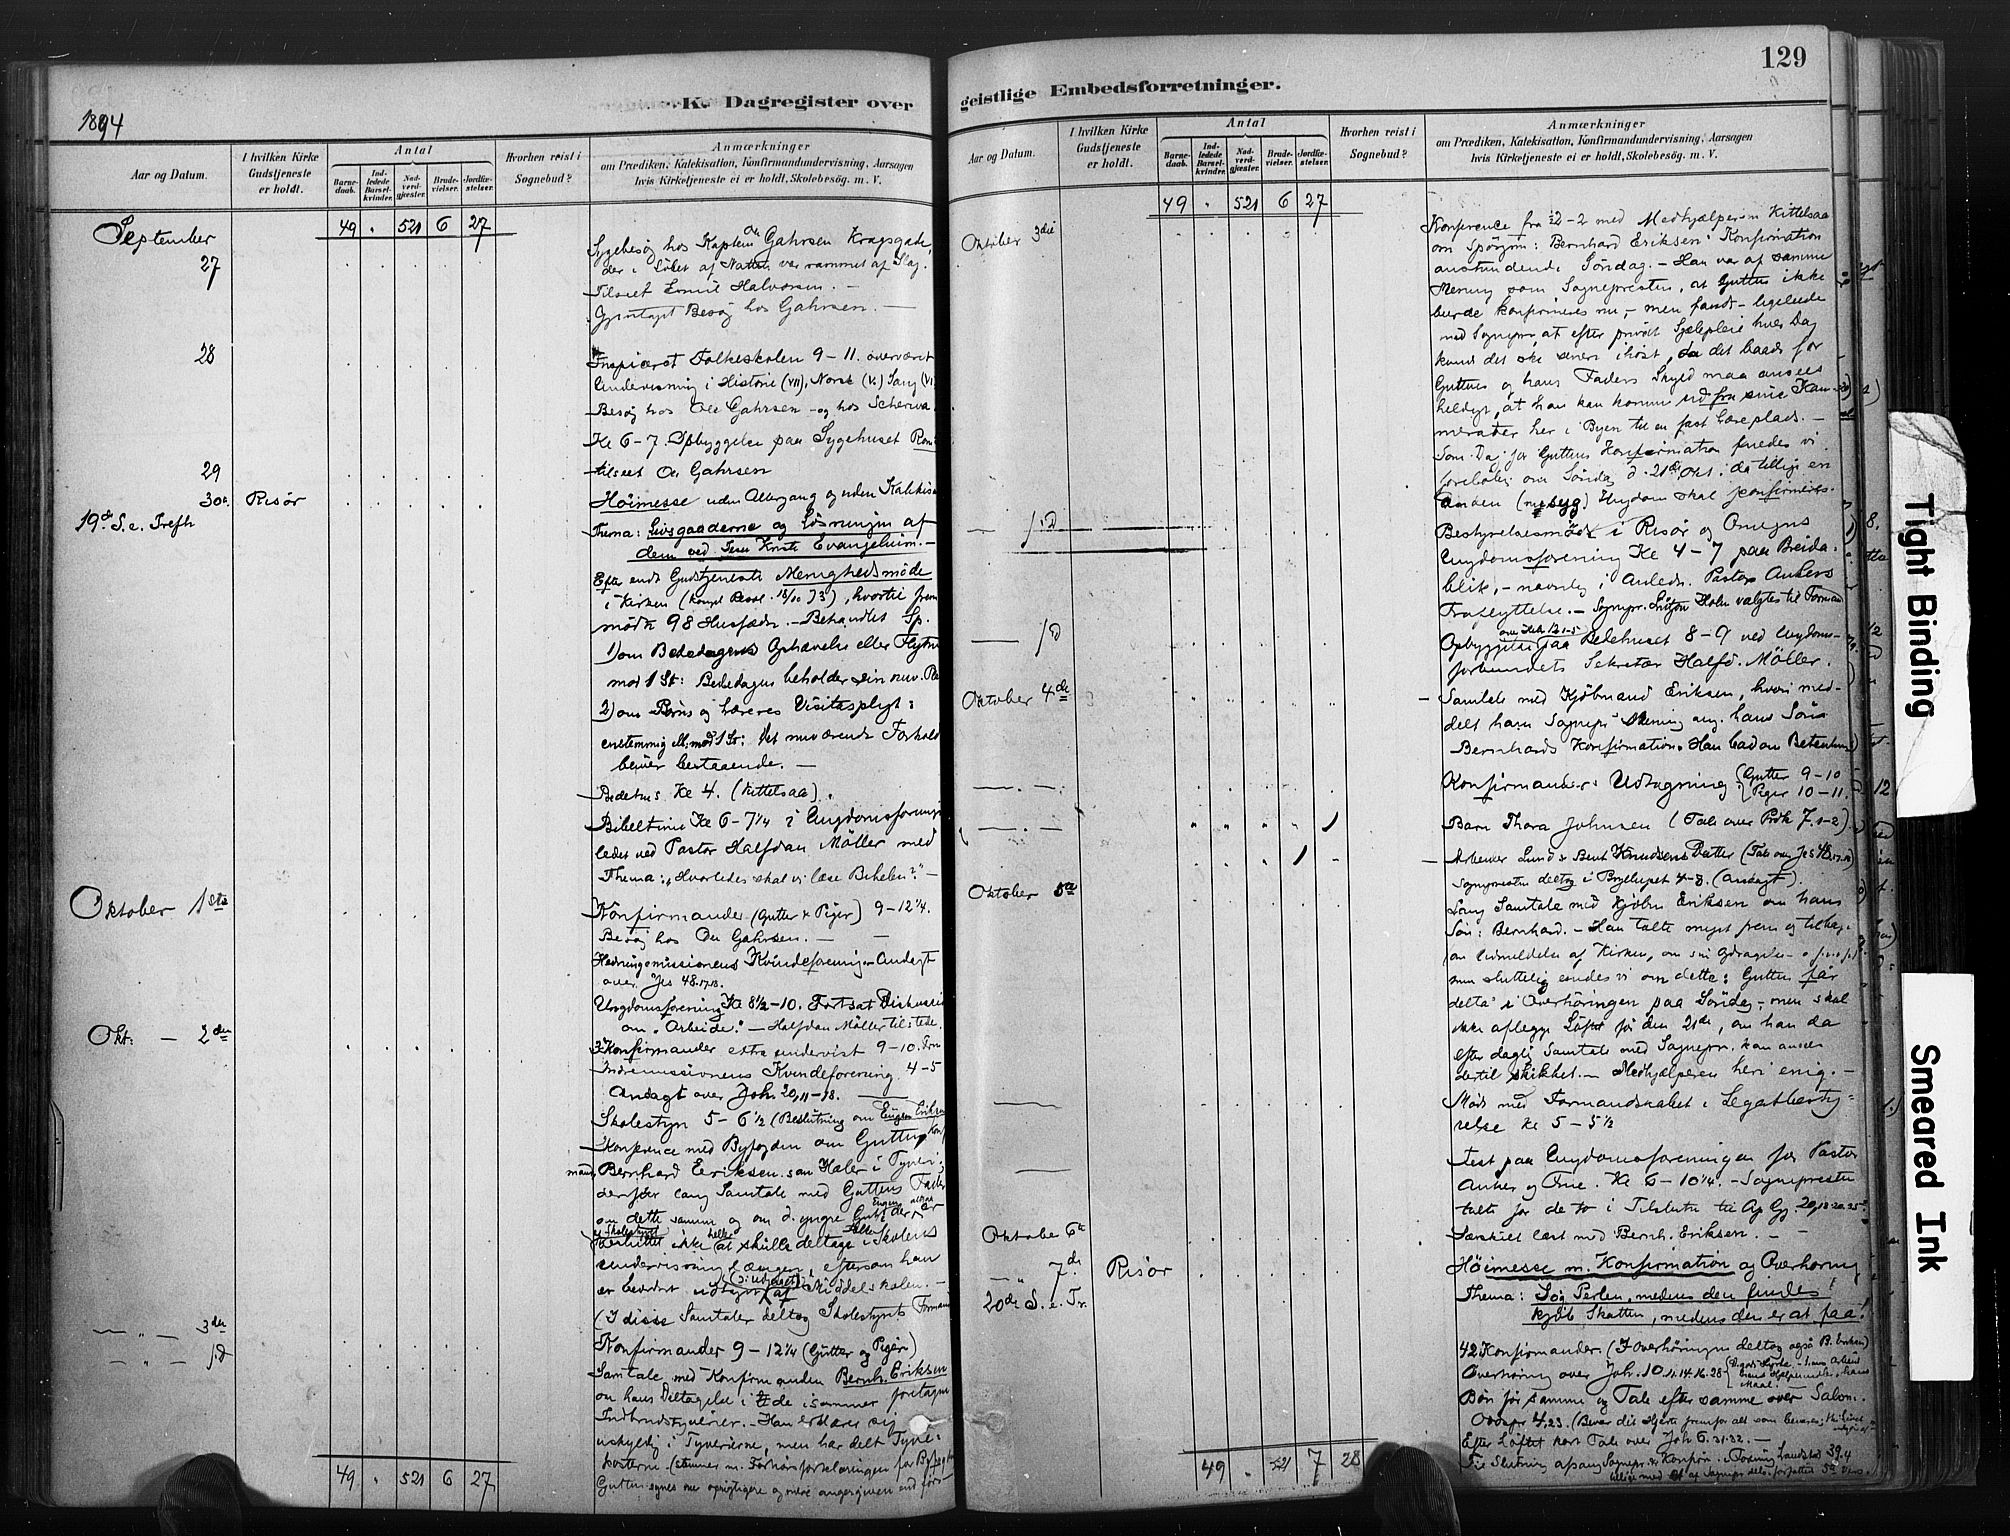 129
K. Dagregister over
geistlige Embedsforretninger.
1894
Aar og Datum.
I hvilken Kirke Gudstjeneste er holdt.
Antal
Barnedaab.
Indledede Barselkvinder.
Nadverdgjæster.
Brudevielser.
Jordfæstelser.
Hvorhen reist i Sognebud?
Anmærkninger
om Prædiken, Katekisation, Konfirmandundervisning, Aarsagen
hvis Kirketjeneste ei er holdt, Skolebesög. m. V.
September 49 521 6 27
27 Sygebesög hos Kaptein Gahrsen Kragsgade,
der i Löbet af Natten var rammet af Slag.
Tilseet Emil Halvorsen. –
Gjentaget Besög hos Gahrsen. –
28 Inspiceret Folkeskolen 9–11. overværet
Undervisning i Historie (VII), Norsk (V.) Sang (VI
Besög hos Ole Gahrsen – og hos
Kl 6–7 Opbyggelse paa Sygehuset
29 tilseet Ole Gahrsen
30te Risør Höimesse uden Altergang og uden Katekis
19de S. e. Trefh Thema: Livsgaaderne og Lösningen af
dem ved Jesu Kristi Evangelium. –
Efter endt Gudstjeneste Menighedsmöde
i Kirken (Kongel Besl. 18/10 73), hvortil frem
mödte 98 Husfædre. – Behandlet Sp.
1) om Bededagens Ophævelse eller Flytn
mod 1 St: Bededagen beholder sin nuv.
2) om Börns og Læreres Visitaspligt:
enstemmig mod 1 St: det nuværende Forhold
bliver bestaaende. –
Bedehus Kl 4. (Kittelsaa).
Bibeltime Kl 6–7¼ i Ungdomsforening
ledet ved Pastor Halfdan Möller med
Thema: „Hvorledes skal vi læse Bibelen?" –
Oktober 1ste Konfirmander (Gutter & Piger) 9–12¼.
Besög hos Ole Gahrsen. –
Hedningemissionens Kvindeforening – Andagt
over Jes 48.17.18.
Ungdomsforening Kl 8½–10. Fortsat Diskussi
om „Arbeide". – Halfdan Möller tilstede.
Okt: – 2den 3 Konfirmander extra undervist 9–10.
Indremissionens Kvindeforening 4–5
Andagt over Joh 20,11–18.
Skolestyr 5–6½ (Beslutning om Eugen Eriksen
Konference med Byfogden om Gutten
Bernhard Eriksen som Hæler i Tyveri,
derefter lang Samtale med Guttens Fader
om dette samme og om d. yngre Gut
ikke heller at skulle deltage i Skolens
Undervisning længer, eftersom han
er bevidst udskrevet af Middelskolen. –
(I disse Samtaler deltog Skolestyrets Formand
— „ — 3die Konfirmander 9–12¼ (Gutter og Piger)
— „ — s.D Samtale med Konfirmanden Bernh. Eriksen
om hans Deltagelse i de i sommer foretagne
Indbrudstyverier. – Han erklærer sig
uskyldig i Tyverierne, men har delt Tyve-
kosterne. – (stemmer m. Forhörsforklaringen for Byfogden
Gutten synes nu oprigtigere og mere angergiven end för
49 521 6 27
Aar og Datum.
I hvilken Kirke Gudstjeneste er holdt.
Antal
Barnedaab.
Indledede Barselkvinder.
Nadverdgjæster.
Brudevielser.
Jordfæstelser.
Hvorhen reist i Sognebud?
Anmærkninger
om Prædiken, Katekisation, Konfirmandundervisning, Aarsagen
hvis Kirketjeneste ei er holdt, Skolebesög. m. V.
49 521 6 27
Oktober 3die Konference fra ½2–2 med Medhjælperen Kittelsaa
om Spörgsm: Bernhard Eriksens Konfirmation
anstundende Söndag. – Han var af samme
Mening som Sognepresten, at Gutten ikke
burde konfirmeres nu, – men fandt – ligeledes
med Sognepr, at efter privat Sjælepleie hver Dag
kunde det ske senere ihöst, da det baade for
Guttens og hans Faders Skyld maa ansees
heldigt, at han kan komme ud fra sine Kam-
merater her i Byen til en fast Læreplads. –
Som Dag for Guttens Konfirmation enedes vi
foreløbig om Söndag d. 21de Okt. da tillige en
anden (nu syg) Ungdom skal konfirmeres.
— s.D Bestyrelsesmöde i Risör og Omegns
Ungdomsforening Kl 4–7 paa Breida-
blik, – navnlig i Anledn. Pastor Ankers
Fraflyttelse. – Sognepr. Holm valgtes til Formand
— s.D Opbyggelse paa Bedehuset 8–9 ved Ungdoms-
forbundets Sekretær Halfd. Möller.
Oktober 4de Samtale med Kjöbmand Eriksen, hvori med-
delt ham Sognepr's Mening ang. hans Söns
Bernhards Konfirmation. Han bad om Betænkn)
— . — . Konfirmanders Udtagning (Gutter 9–10
(Piger 10–11.
— . — Barn Thora Johnsen (Tale over Præk 7.1–2).
Arbeider Lund & Berit Knudsens Datter (Tale over Jes 48.17.18)
Sognepresten deltog i Bryllupet 4–8. (Andagt).
Oktober 5te Lang Samtale med Kjöbm Eriksen om hans
Sön: Bernhard. – Han talte meget frem og tilbage
om Udmeldelse af Kirken, om sin
men sluttelig enedes vi om dette: Gutten faar
delta i Overhöringen paa Söndag – men skal
ikke aflegge Löftet för den 21de, om han da
efter daglig Samtale med Sognepr. kan ansees
dertil skikket. – Medhjælperen heri enig. –
Möde med Formandskabet i Legatbesty-
relse Kl 5–5½
Fest paa Ungdomsforeningen for Pastor
Anker og Frue. Kl 6–10¼. – Sognepresten
talte for de to i Tilslutn. til Ap Gj. 20,18-20.25
Oktober 6te Særskilt læst med Bernh. Eriksen. –
— „ 7de Risör Höimesse m. Konfirmation og Overhöring
20de S. e. Tr. Thema: Søg Perlen, medens den findes!
kjöb Skatten, medens den er at faa!
42 Konfirmander. (I Overhöringen deltog også B. Eriksen)
Overhöring over Joh. 10.11.14.16.28
Bön för samme og Tale efter samme over Salom.
Ordspr 4,23. (Bevar dit Hjerte fremfor alt som bevares;
Efter Löftet kort Tale over Joh 6.31-32. –
Til Slutning afsang
49 521 7 28
Tight Binding
Smeared Ink